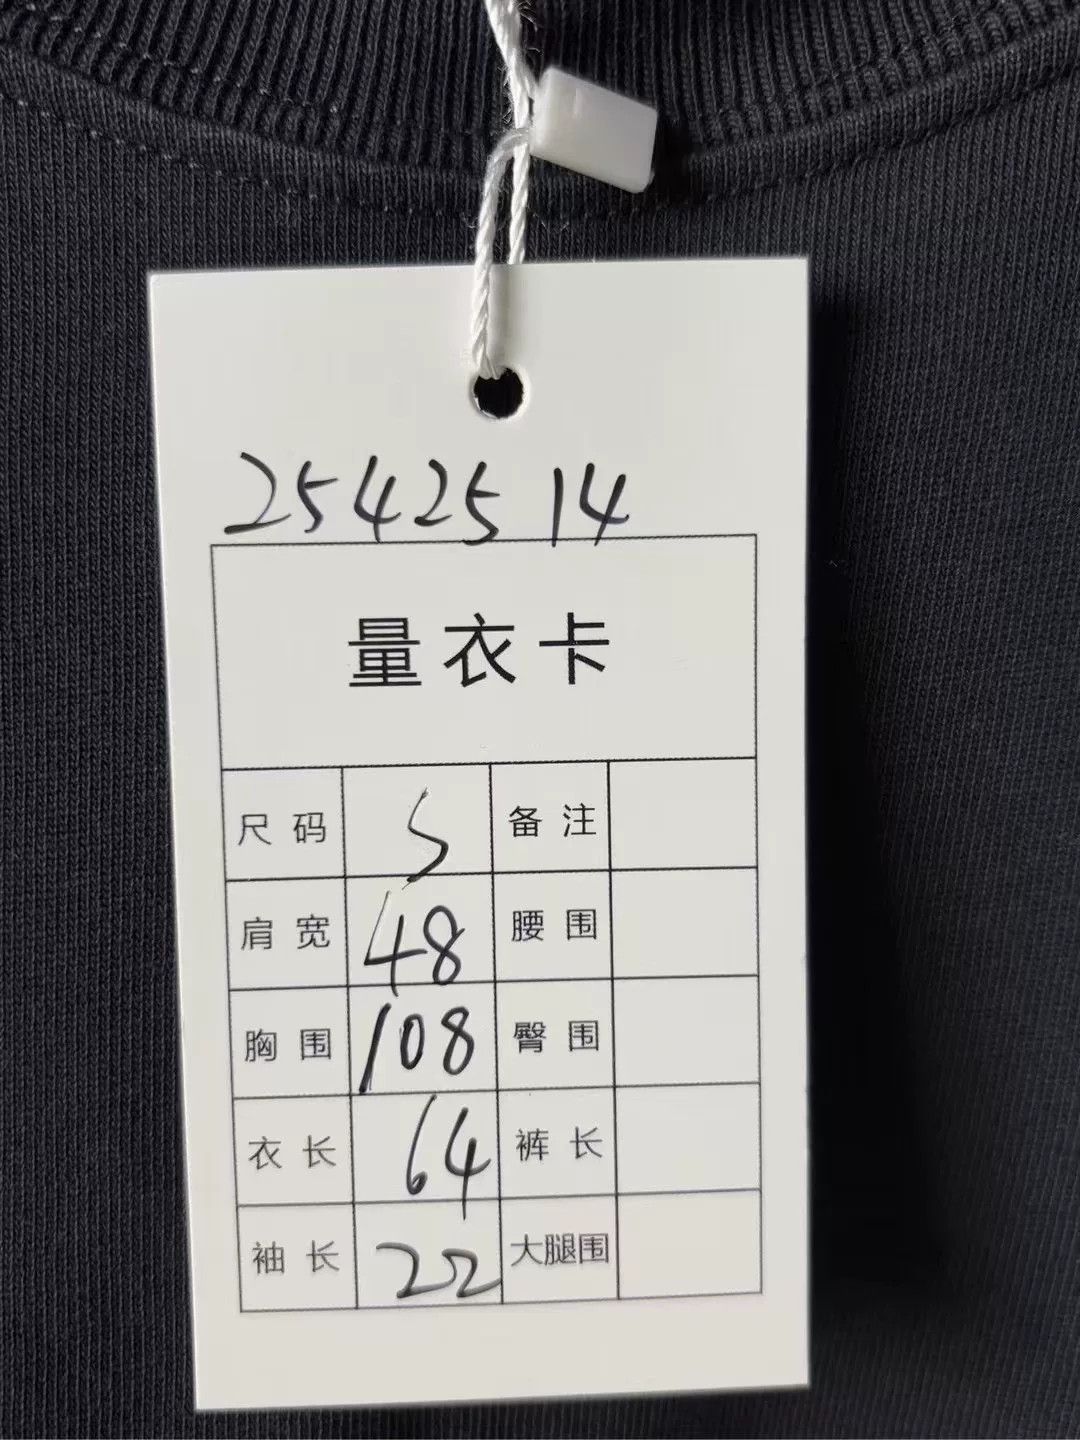 25425 14
量衣卡
尺码 S 备注
肩宽 48 腰围
胸围 108 臀围
衣长 64 裤长
袖长 22 大腿围